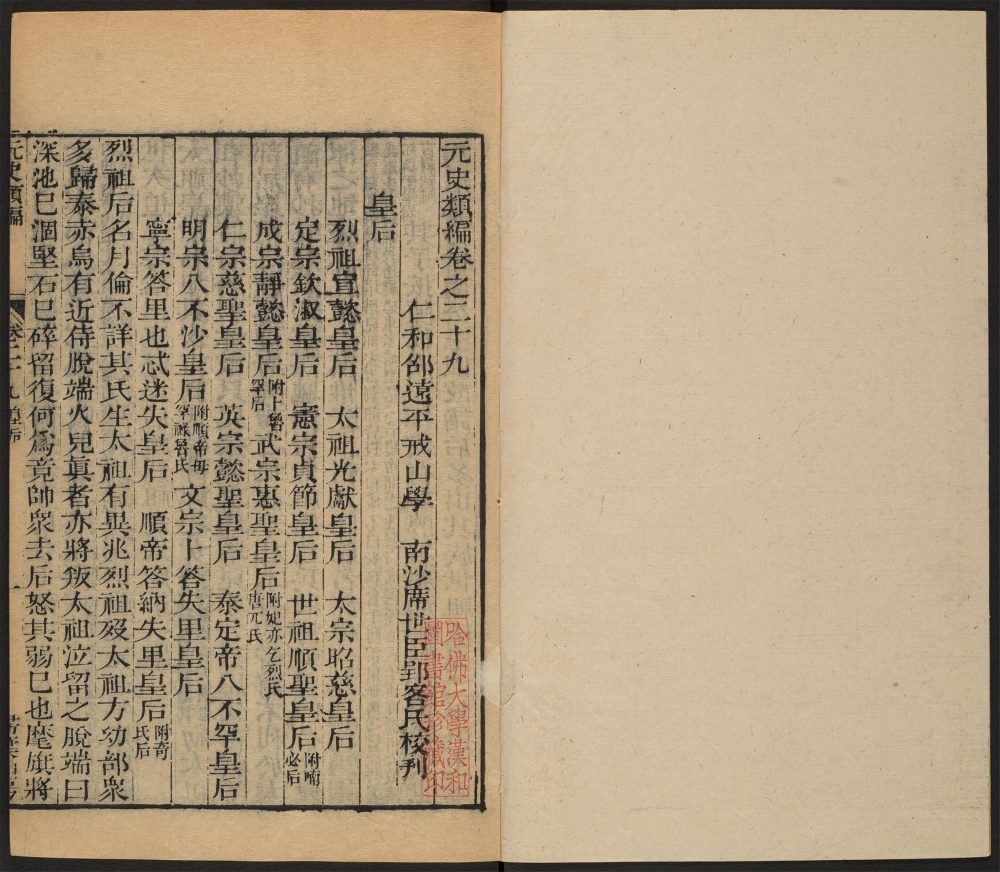 元史類編卷之二十九
仁和邵遠平戒山學 南沙席世臣郢客氏校刊
哈佛大學漢和
圖書館珍藏印
皇后
烈祖宣懿皇后 太祖光獻皇后 太宗昭慈皇后
定宗欽淑皇后 憲宗貞節皇后 世祖順聖皇后附喃必后
成宗靜懿皇后附卜魯罕后 武宗惠聖皇后附妃亦乞烈氏唐兀氏
仁宗慈聖皇后 英宗懿聖皇后 泰定帝八不罕皇后
明宗八不沙皇后附順帝母罕祿魯氏 文宗卜答失里皇后
寧宗答里也忒迷失皇后 順帝答納失里皇后附奇氏后
烈祖后名月倫不詳其氏生太祖有異兆烈祖歿太祖方幼部衆
多歸泰赤烏有近侍脫端火兒眞者亦將叛太祖泣留之脫端曰
深池已涸堅石已碎留復何爲竟帥衆去后怒其弱已也麾旗將
元史類編 卷二十九 皇后 一